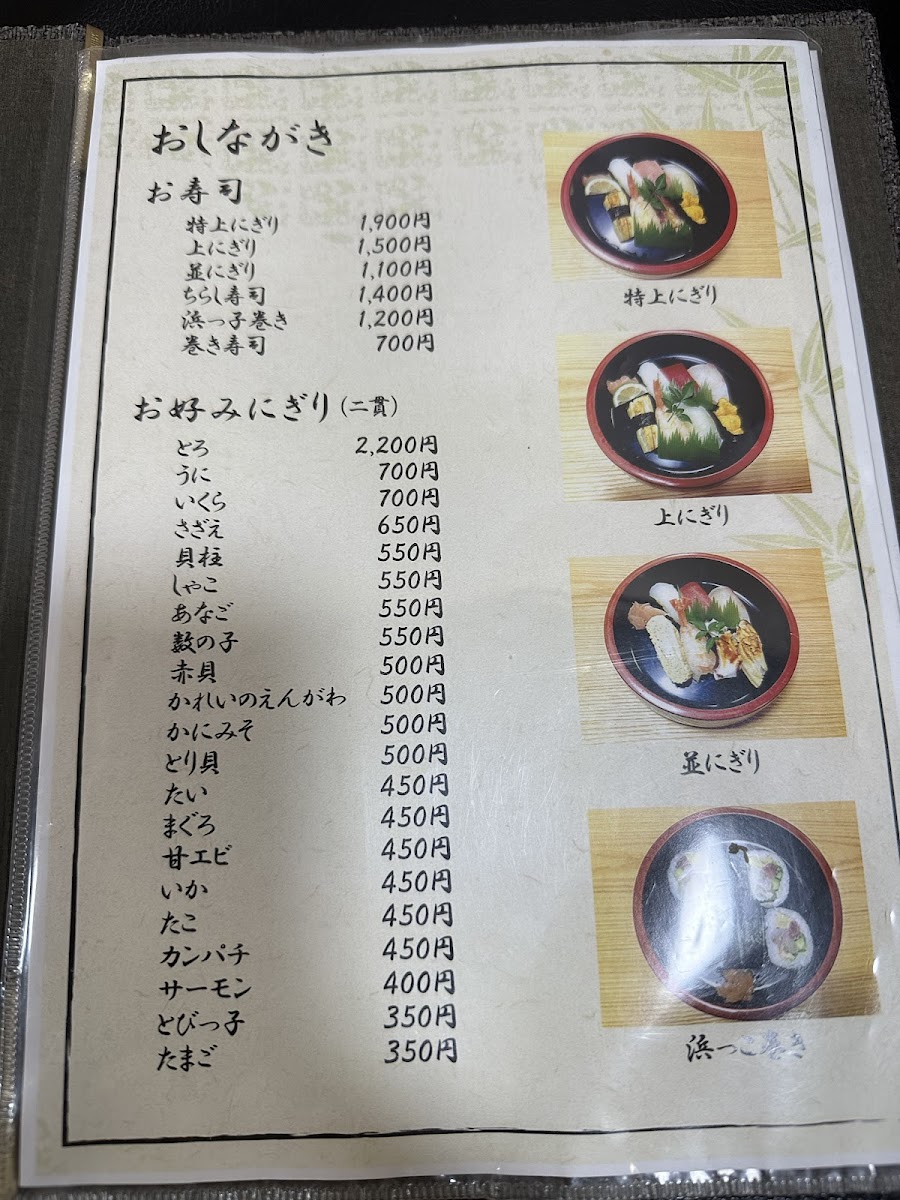 おしながき
お寿司
特上にぎり 1,900円
上にぎり 1,500円
並にぎり 1,100円
ちらし寿司 1,400円
浜っ子巻き 1,200円
巻き寿司 700円
お好みにぎり(二貫)
とろ 2,200円
うに 700円
いくら 700円
さざえ 650円
貝柱 550円
しゃこ 550円
あなご 550円
数の子 550円
赤貝 500円
かれいのえんがわ 500円
かにみそ 500円
とり貝 500円
たい 450円
まぐろ 450円
甘エビ 450円
いか 450円
たこ 450円
カンパチ 450円
サーモン 400円
とびっ子 350円
たまご 350円
特上にぎり
上にぎり
並にぎり
浜っこ巻き